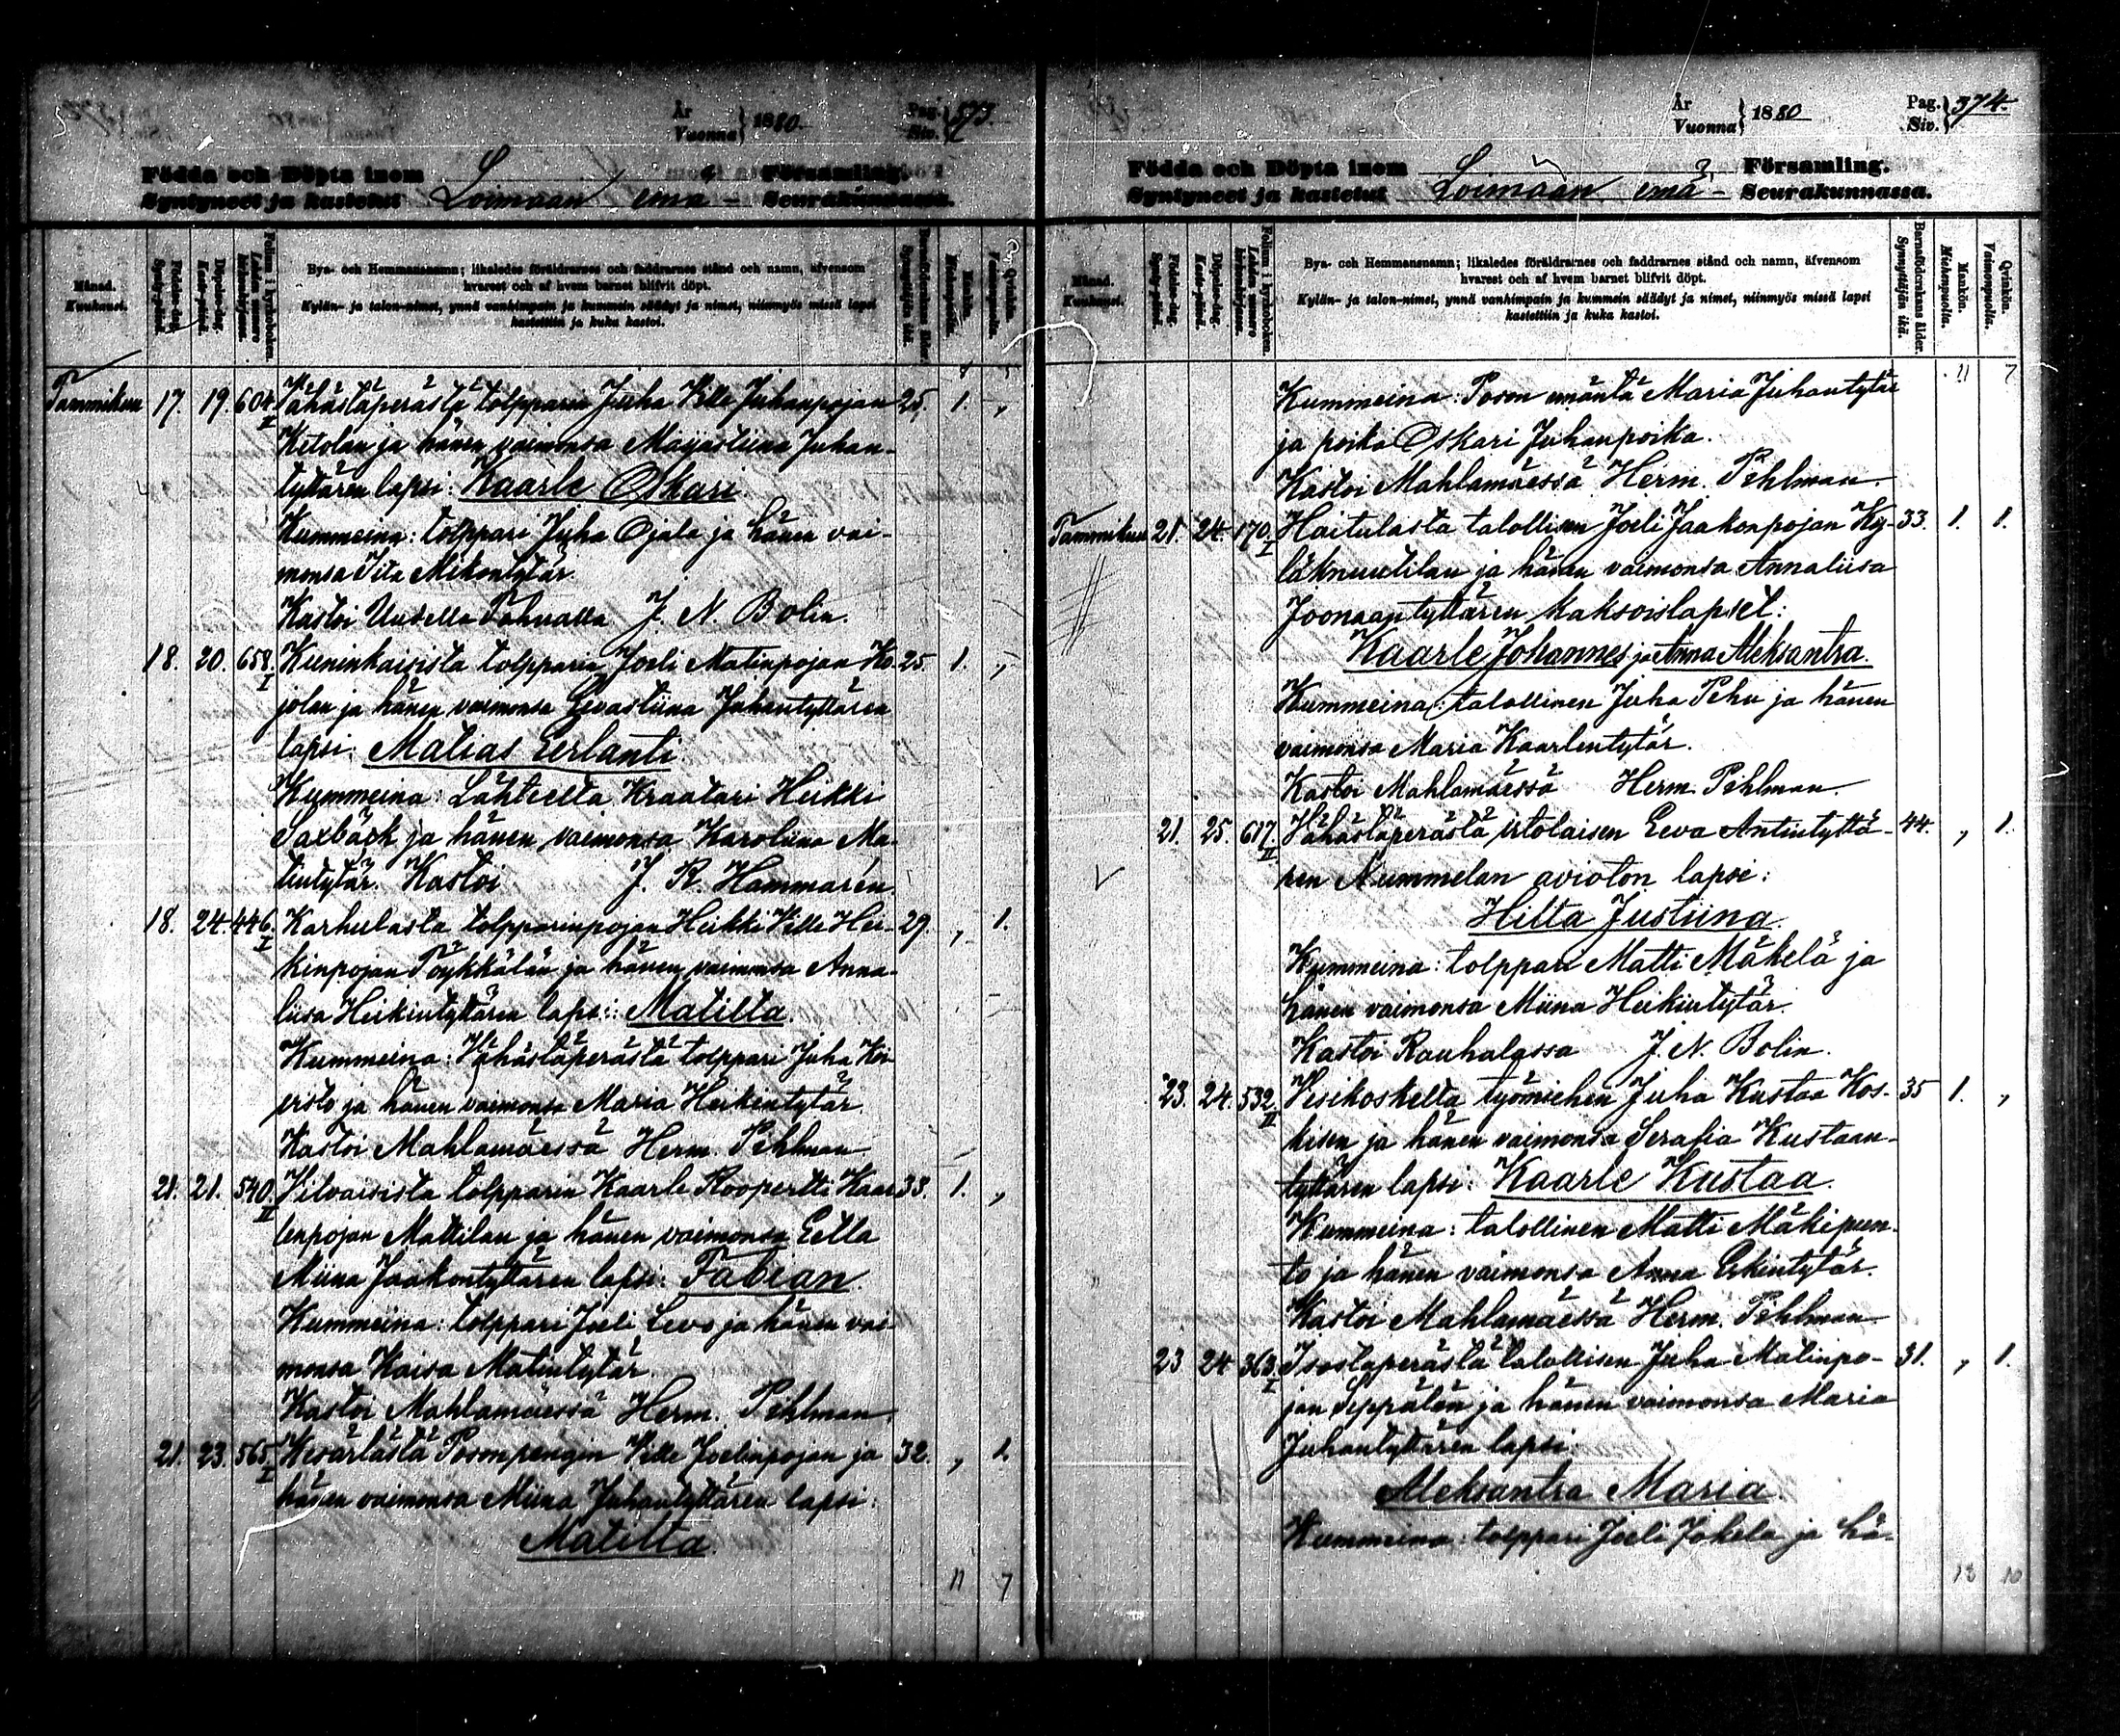 År
Vuonna } 1880.
Pag.
Siv. } 373.
Födda och Döpta inom Församling.
Syntyneet ja kastetut Loimaan emä- Seurakunnassa.
Månad.
Kuukausi.
Födelse-dag.
Synty-päivä.
Döpelse-dag.
Kaste-päivä.
Folium i kyrkoboken.
Lehden numero kirkonkirjassa.
Bya- och Hemmansnamn; likaledes föräldrarnes och faddrarnes stånd och namn, äfvensom
hvarest och af hvem barnet blifvit döpt.
Kylän- ja talon-nimet, ynnä vanhimpain ja kummein säädyt ja nimet, niinmyös missä lapsi
kastettiin ja kuka kastoi.
Barnaföderskans ålder.
Synnyttäjän ikä.
Mankön.
Miehenpuolta.
Qvinkön.
Vaimonpuolta.
Tammikuu 17. 19. 604. I Vähästäperästä tolpparin Juha Ville Juhanpojan 25. 1. „
Ketolan ja hänen vaimonsa Majastiina Juhan-
tyttären lapsi: Kaarle Oskari.
Kummeina: tolppari Juha Ojala ja hänen vai-
monsa Iita Mikontytär.
Kastoi Uudella Tahvalla J. N. Bolin.
18. 20. 658. I Kuninkaisista tolpparin Joeli Matinpojan Ko- 25. 1. „
jolan ja hänen vaimonsa Eevastiina Juhantyttären
lapsi: Matias Eerlanti
Kummeina: Lähteeltä Kraatari Heikki
Saxbäck ja hänen vaimonsa Karoliina Ma-
tintytär. Kastoi J. R. Hammarén.
18. 24. 446. I Karhulasta tolpparinpojan Heikki Ville Hei- 29. „ 1.
kinpojan Pöykkälän ja hänen vaimonsa Anna-
liisa Heikintyttären lapsi: Matilta.
Kummeina: Vähästäperästä tolppari Juha Koi-
visto ja hänen vaimonsa Maria Heikintytär.
Kastoi Mahlamäessä Herm. Pihlman
21. 21. 540. II Vilvaisista tolpparin Kaarle Roopertti Kaar- 33. 1. „
lenpojan Mattilan ja hänen vaimonsa Eetla
Miina Jaakontyttären lapsi: Fabian.
Kummeina: tolppari Joeli Levo ja hänen vai-
monsa Kaisa Matintytär.
Kastoi Mahlamäessä Herm. Pihlman.
21. 23. 565. I Kesärlästä Posonpengin Ville Joelinpojan ja 32. „ 1.
hänen vaimonsa Miina Juhantyttären lapsi:
Matilta.
11 7
År
Vuonna } 1880
Pag.
Siv. } 374.
Födda och Döpta inom Församling.
Syntyneet ja kastetut Loimaan emä- Seurakunnassa.
Månad.
Kuukausi.
Födelse-dag.
Synty-päivä.
Döpelse-dag.
Kaste-päivä.
Folium i kyrkoboken.
Lehden numero kirkonkirjassa.
Bya- och Hemmansnamn; likaledes föräldrarnes och faddrarnes stånd och namn, äfvensom
hvarest och af hvem barnet blifvit döpt.
Kylän- ja talon-nimet, ynnä vanhimpain ja kummein säädyt ja nimet, niinmyös missä lapsi
kastettiin ja kuka kastoi.
Barnaföderskans ålder.
Synnyttäjän ikä.
Mankön.
Miehenpuolta.
Qvinkön.
Vaimonpuolta.
11 7
Kummeina: Poson emäntä Maria Juhantytär
ja poika Oskari Juhanpoika.
Kastoi Mahlamäessä Herm. Pihlman.
Tammikuu 21. 24. 170. I Haitulasta talollisen Joeli Jaakonpojan Ky- 33. 1. 1.
läknuutilan ja hänen vaimonsa Annaliisa
Joonaantyttären kaksoislapset:
Kaarle Johannes ja Anna Aleksantra.
Kummeina: talollinen Juha Pehu ja hänen
vaimonsa Maria Kaarlentytär.
Kastoi Mahlamäessä Herm. Pihlman.
21. 25. 617. II Vähästäperästä irtolaisen Eeva Antintyttä- 44. „ 1.
ren Nummelan avioton lapsi:
Hilta Justiina.
Kummeina: tolppari Matti Mäkelä ja
hänen vaimonsa Miina Heikintytär.
Kastoi Rauhalassa J. N. Bolin.
23. 24. 532. II Vesikoskelta työmiehen Juha Kustaa Kos- 35 1. „
kisen ja hänen vaimonsa Serafia Kustaan-
tyttären lapsi: Kaarle Kustaa.
Kummeina: talollinen Matti Mäkipern-
to ja hänen vaimonsa Anna Erkintytär.
Kastoi Mahlamäessä Herm. Pihlman
23 24 363. I Isostaperästä talollisen Juha Matinpo- 31. „ 1.
jan Seppälän ja hänen vaimonsa Maria
Juhantyttären lapsi:
Aleksantra Maria.
Kummeina: tolppari Joeli Jokela ja hä-
13 10